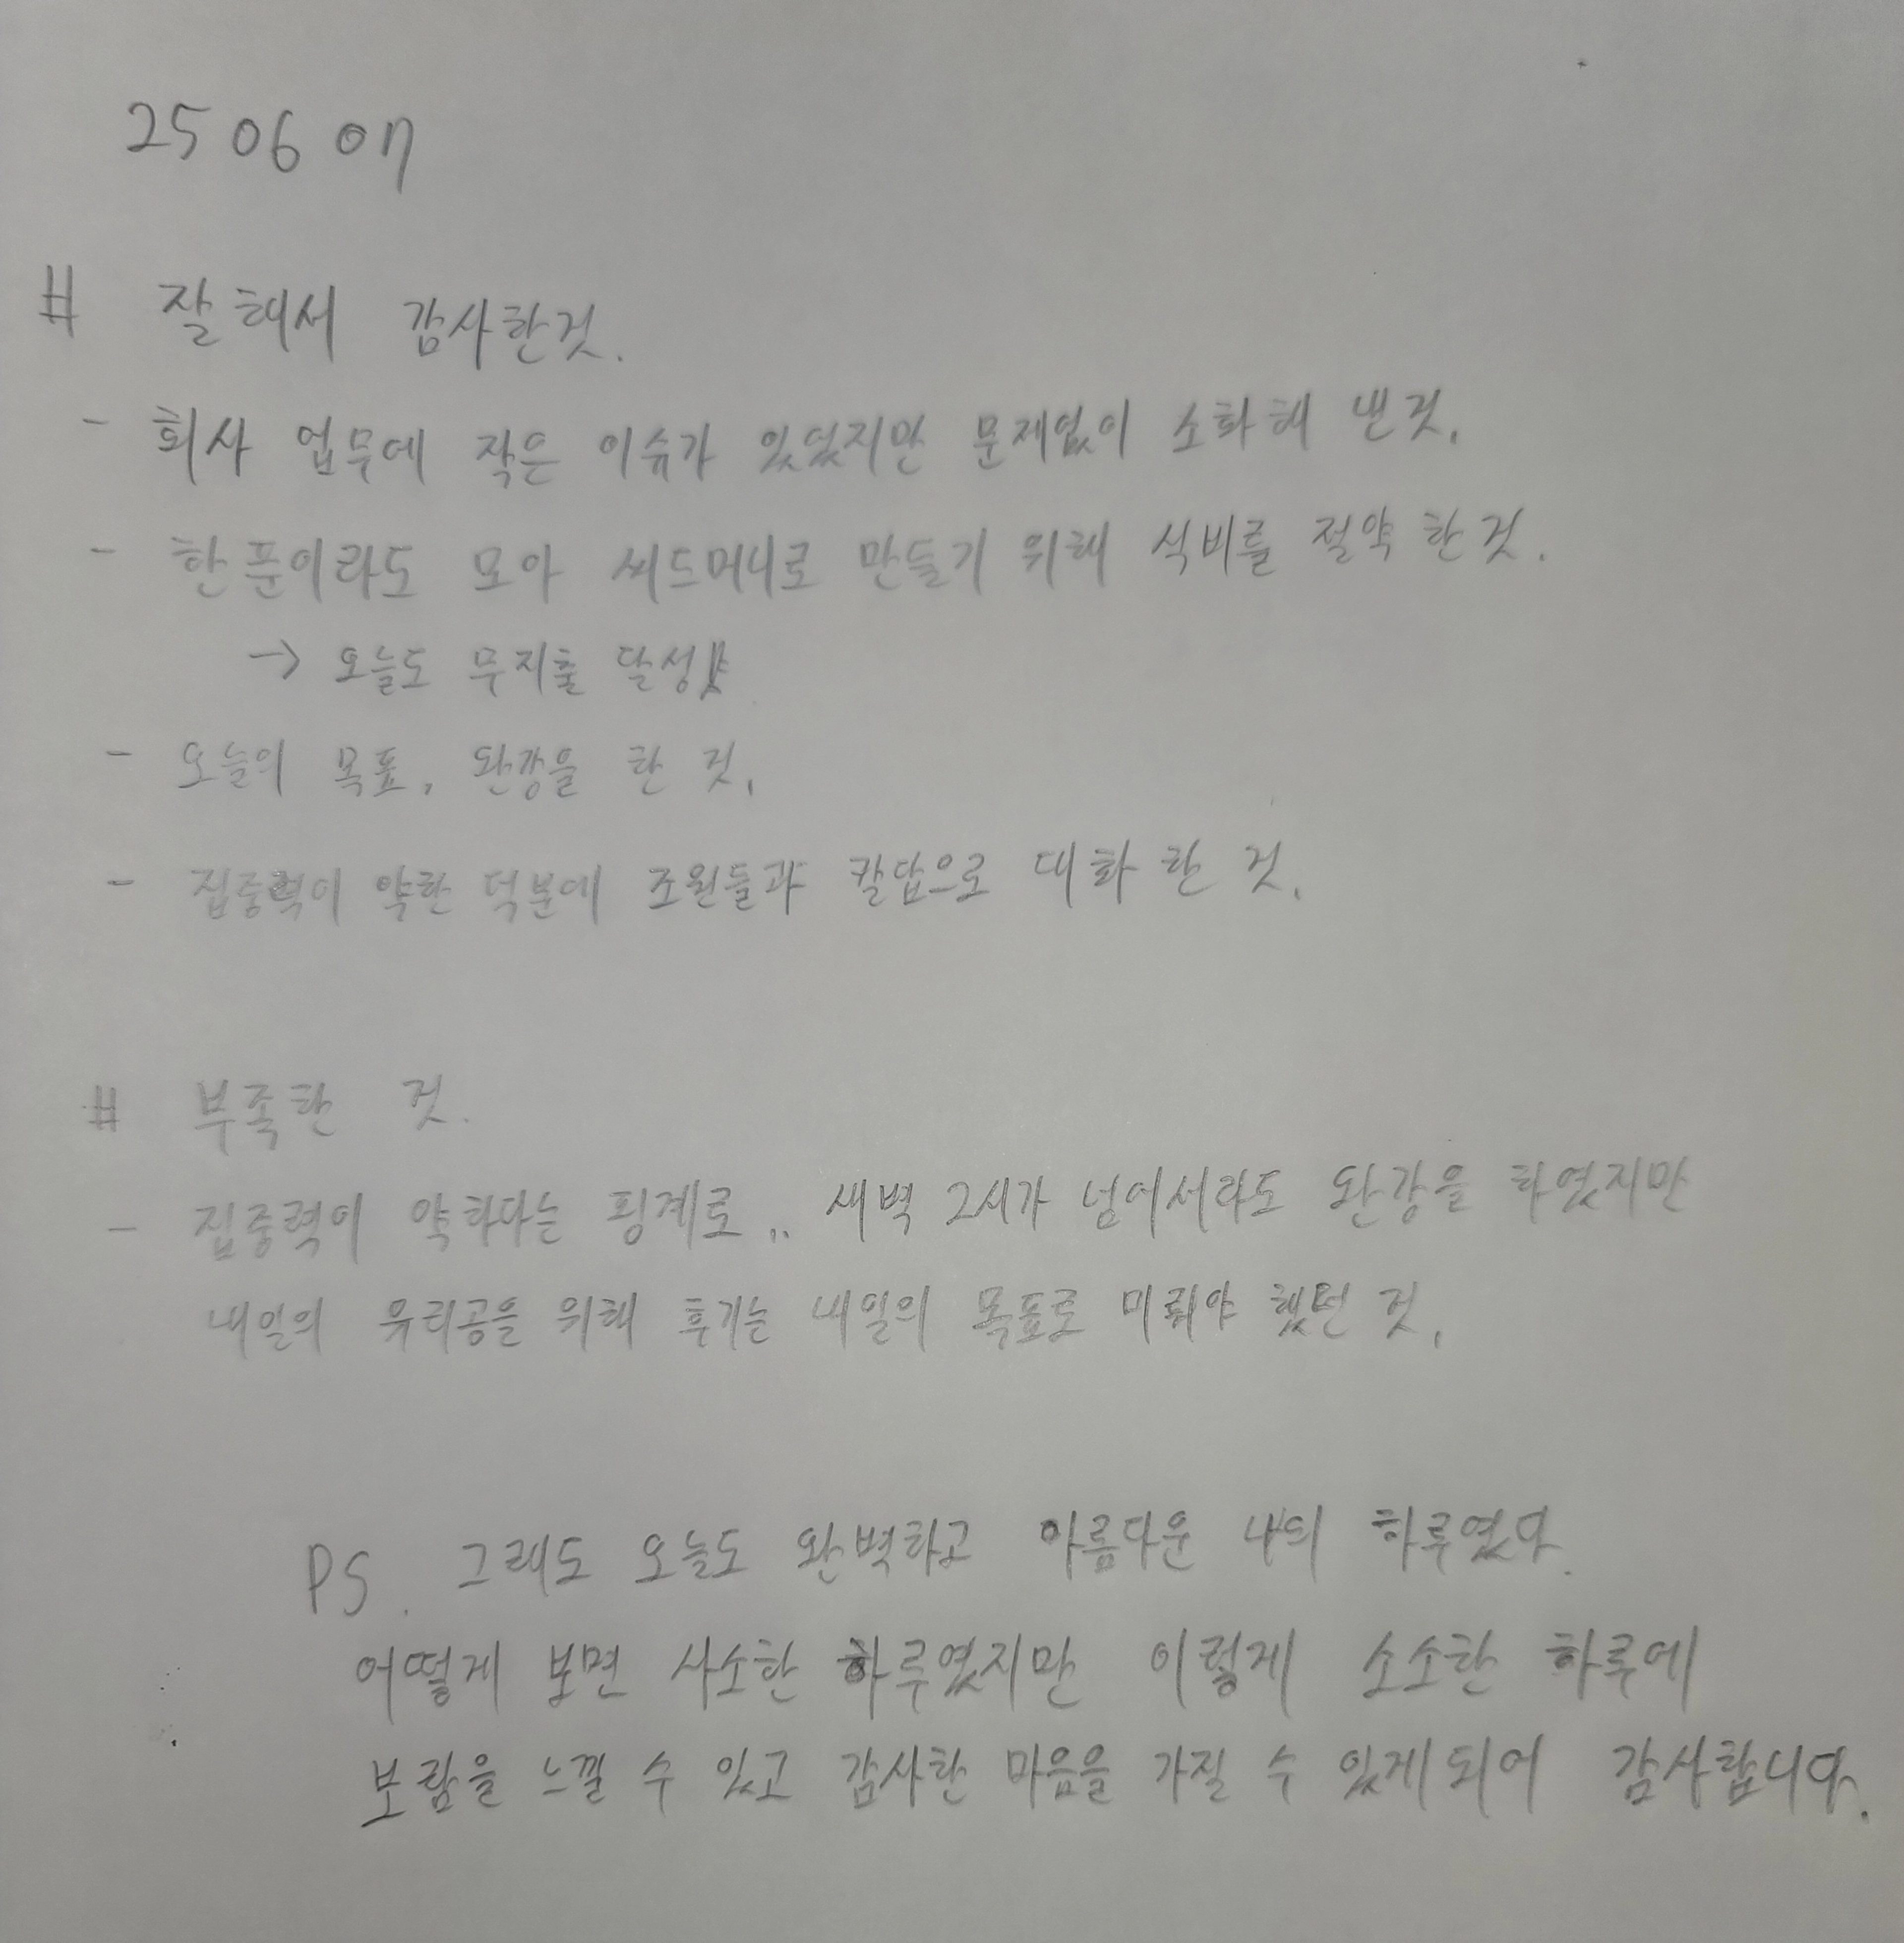 25 06 07
# 잘해서 감사한것.
- 회사 업무에 작은 이슈가 있었지만 문제없이 소화해 낸것.
- 한푼이라도 모아 씨드머니로 만들기 위해 식비를 절약한것.
→ 오늘도 무지출 달성
- 오늘의 목표, 완강을 한 것.
- 집중력이 약한 덕분에 조원들과 칼답으로 대화한 것.
# 부족한 것.
- 집중력이 약하다는 핑계로.. 새벽 2시가 넘어서라도 완강을 하였지만
내일의 유리공을 위해 후기는 내일의 목표로 미뤄야 했던 것.
PS. 그래도 오늘도 완벽하고 아름다운 나의 하루였다.
어떻게 보면 사소한 하루였지만 이렇게 소소한 하루에
보람을 느낄 수 있고 감사한 마음을 가질 수 있게되어 감사합니다.